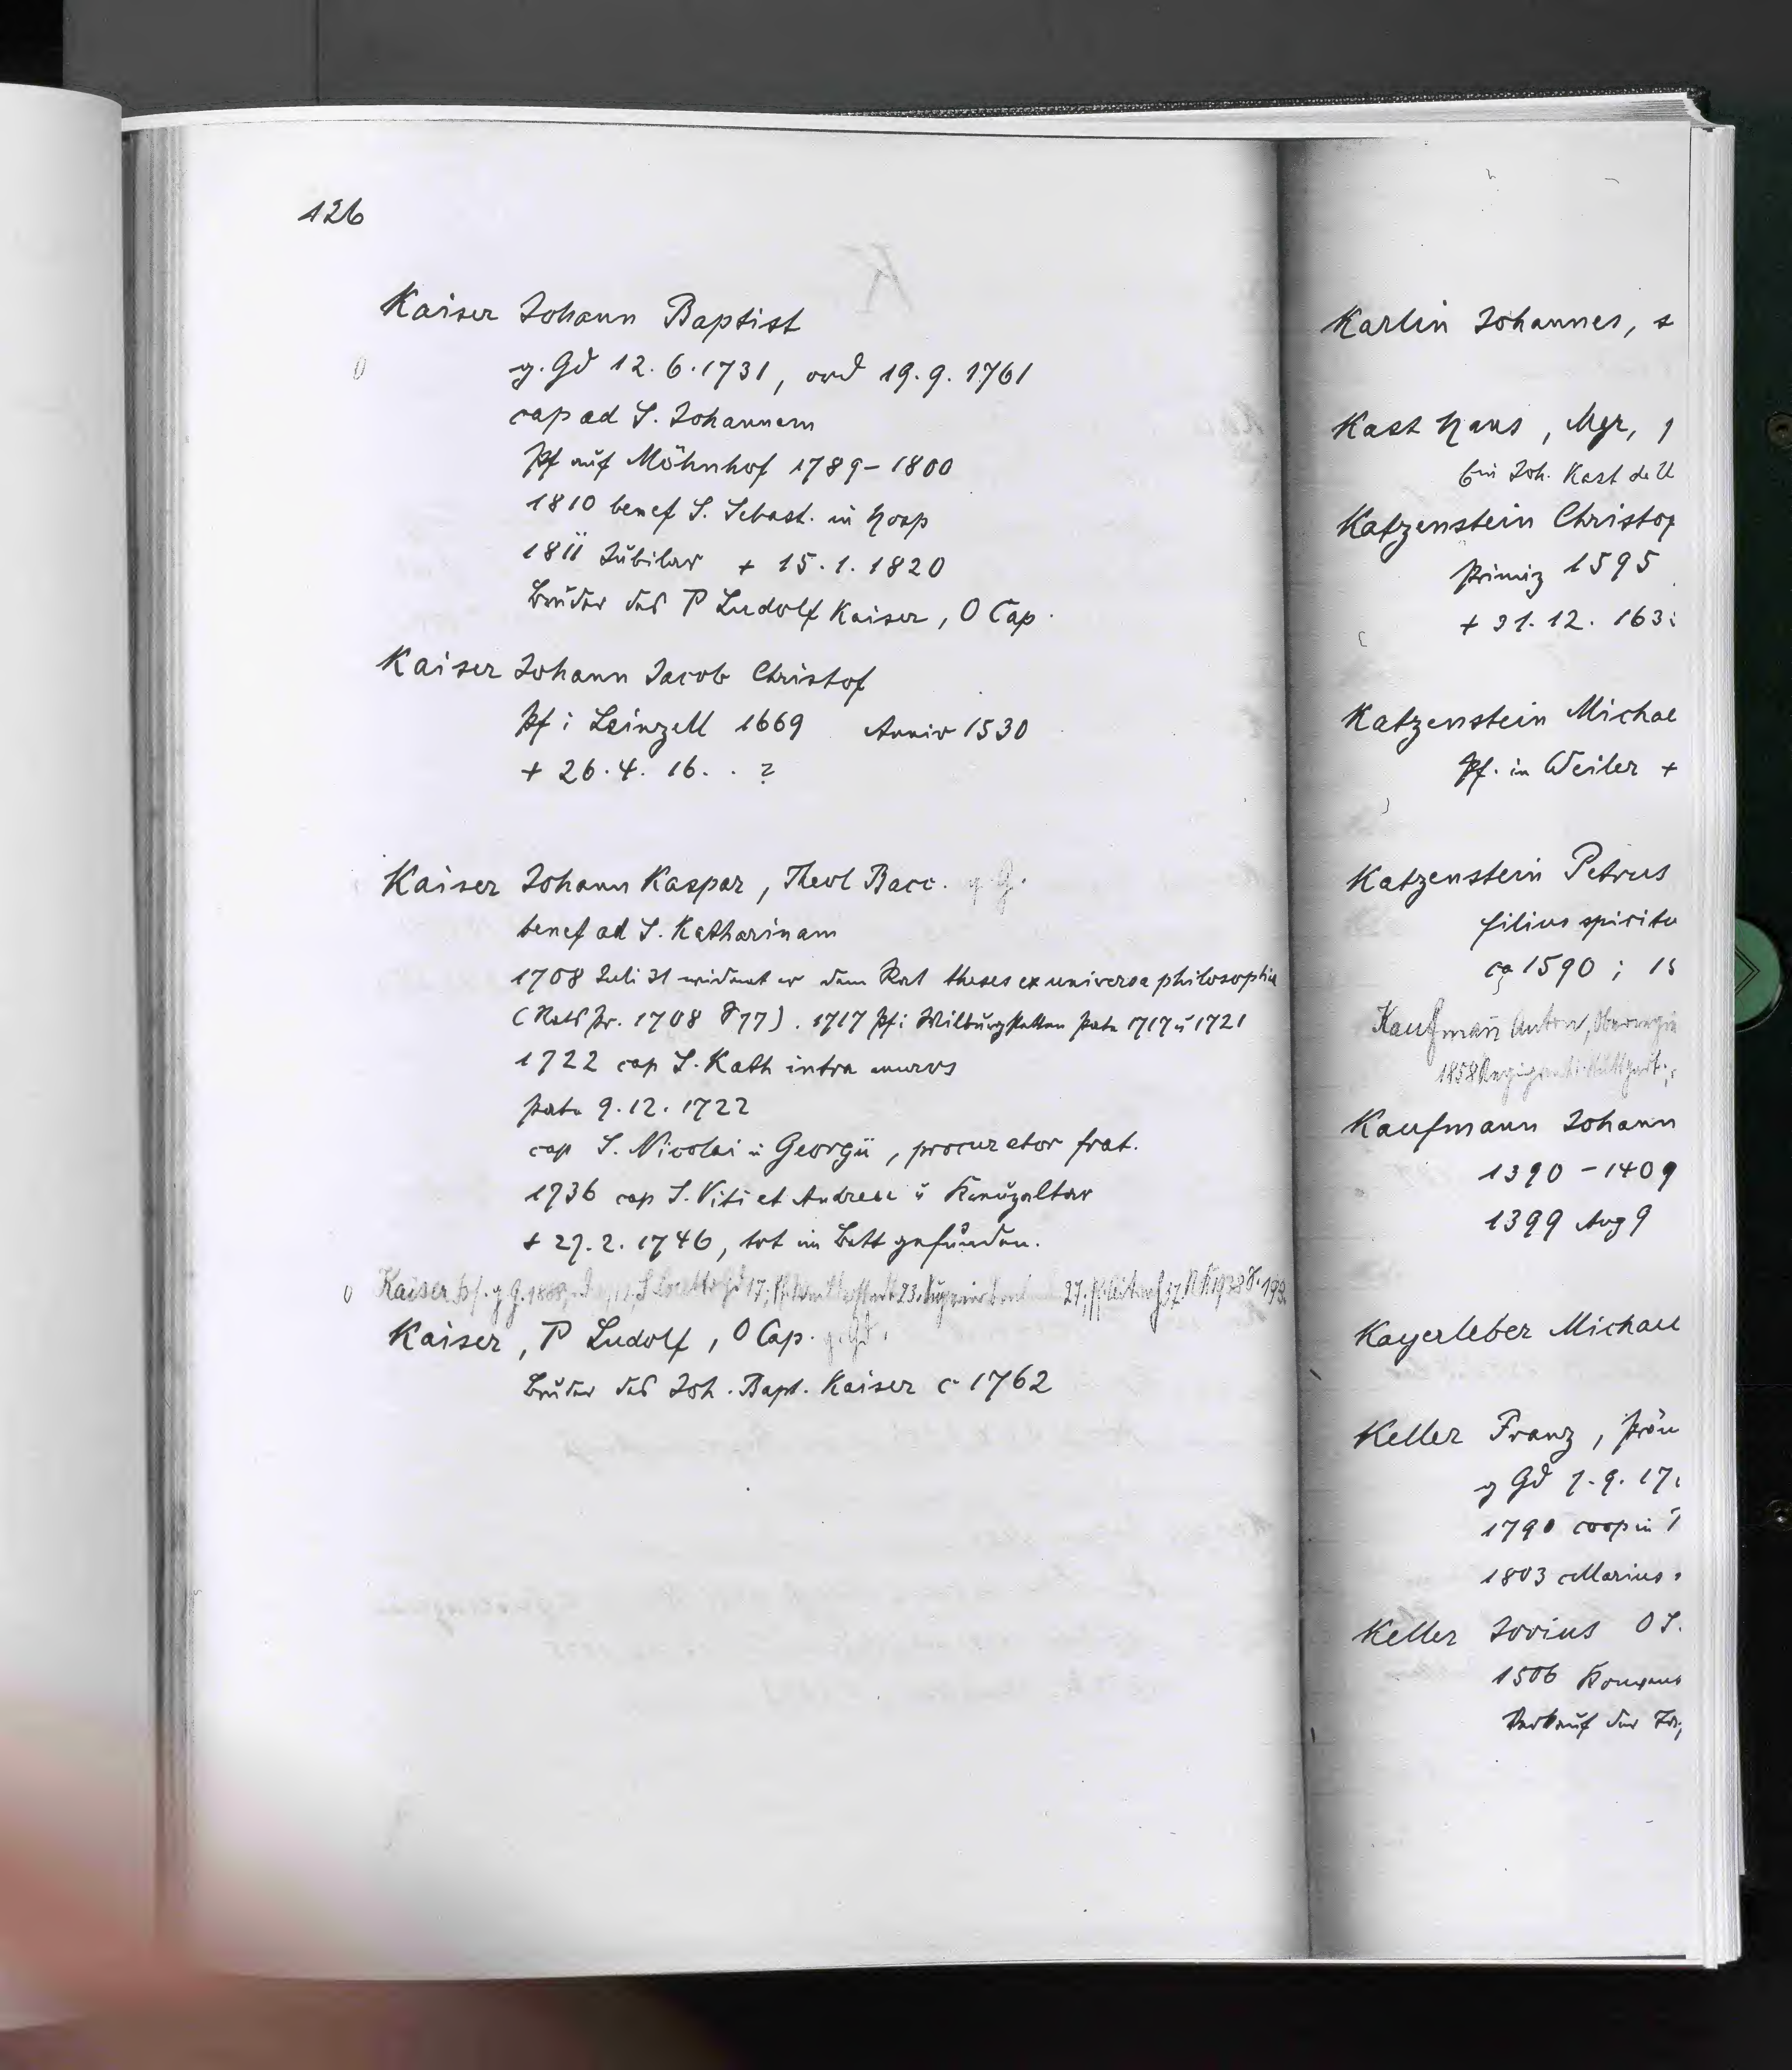 126
K
Kaiser Johann Baptist
g. Gd 12. 6. 1731, ord 19. 9. 1761
cap ad S. Johannem
Pf auf Möhnhof 1789 - 1800
1810 benef S. Sebast. in Hosp
1811 Jubilar + 15. 1. 1820
Bruder des P Ludolf Kaiser, O Cap.
Kaiser Johann Jacob Christof
Pf i Leinzell 1669 Anniv 1530
+ 26. 4. 16. . ?
Kaiser Johann Kaspar, Theol Bacc. g G.
benef ad S. Katharinam
1708 Juli 31 widmet er dem Rat theses ex universa philosophia
(Rats Pr. 1708 § 77). 1717 Pf i Wilburgstetten Pate 1717 u 1721
1722 cap S. Kath intra muros
Pate 9. 12. 1722
cap S. Nicolai u Georgii, procurator frat.
1736 cap S. Viti et Andreae u Kreuzaltar
+ 27. 2. 1746, tot im Bett gefunden.
Kaiser g G. 1888
Kaiser, P Ludolf, O Cap. g. Gd.
Bruder des Joh. Bapt. Kaiser c 1762
Karlin Johannes, s
Kast Hans, Mgr,
bei Joh. Kast de U
Katzenstein Christop
Primiz 1595
+ 31. 12. 163
Katzenstein Michae
Pf. in Weiler +
Katzenstein Petrus
filius spiritu
ca 1590 ; 15
Kaufmann Anton,
1858
Kaufmann Johann
1390 - 1409
1399 Aug 9
Kayerleber Michael
Keller Franz,
g Gd 7. 9. 17
1790 coop in
1803 Marius
Keller Jovius O S.
1506
Verkauf der